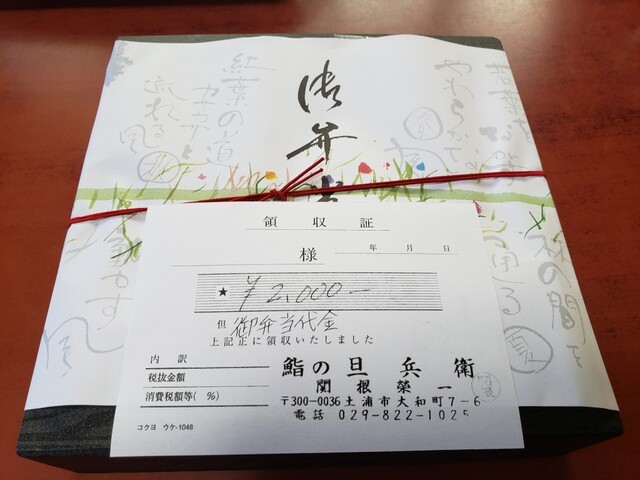 御弁
紅葉の道
カサカサと
流れる
風
若葉を
やわらかで
林の間を
領収証
様
年 月 日
★ ¥2,000-
但 御弁当代金
上記正に領収いたしました
内 訳
税抜金額
消費税額等( %)
鮨の旦兵衛
関根榮一
〒300-0036 土浦市大和町7-6
電話 029-822-1025
コクヨ ウケ-1048